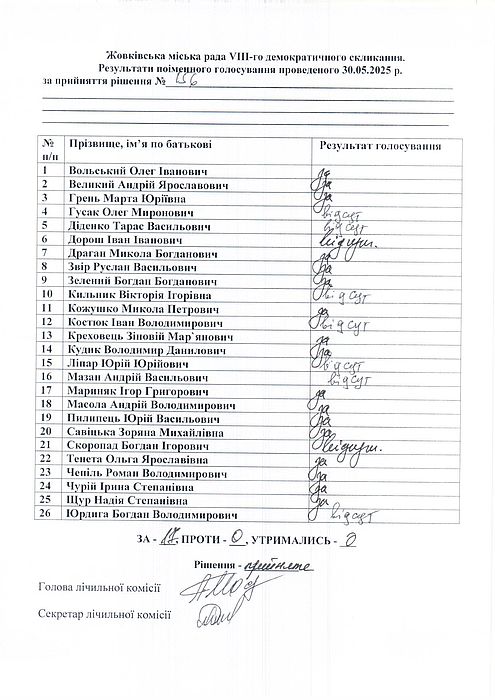 Жовківська міська рада VIII-го демократичного скликання.
Результати поіменного голосування проведеного 30.05.2025 р.
за прийняття рішення № 156
№ п/п Прізвище, ім’я по батькові Результат голосування
1 Вольський Олег Іванович за
2 Великий Андрій Ярославович за
3 Грень Марта Юріївна за
4 Гусак Олег Миронович відсут
5 Діденко Тарас Васильович відсут
6 Дорош Іван Іванович відсут.
7 Драган Микола Богданович за
8 Звір Руслан Васильович за
9 Зелений Богдан Богданович за
10 Кильник Вікторія Ігорівна відсут
11 Кожушко Микола Петрович за
12 Костюк Іван Володимирович відсут
13 Креховець Зіновій Мар`янович за
14 Кудик Володимир Данилович за
15 Ліпар Юрій Юрійович відсут
16 Мазан Андрій Васильович відсут
17 Мариняк Ігор Григорович за
18 Масола Андрій Володимирович за
19 Пилипець Юрій Васильович за
20 Савіцька Зоряна Михайлівна за
21 Скоропад Богдан Ігорович відсут.
22 Тенета Ольга Ярославівна за
23 Чепіль Роман Володимирович за
24 Чурій Ірина Степанівна за
25 Щур Надія Степанівна за
26 Юрдига Богдан Володимирович відсут
ЗА - 17, ПРОТИ - 0, УТРИМАЛИСЬ - 0
Рішення - прийняте
Голова лічильної комісії
Секретар лічильної комісії